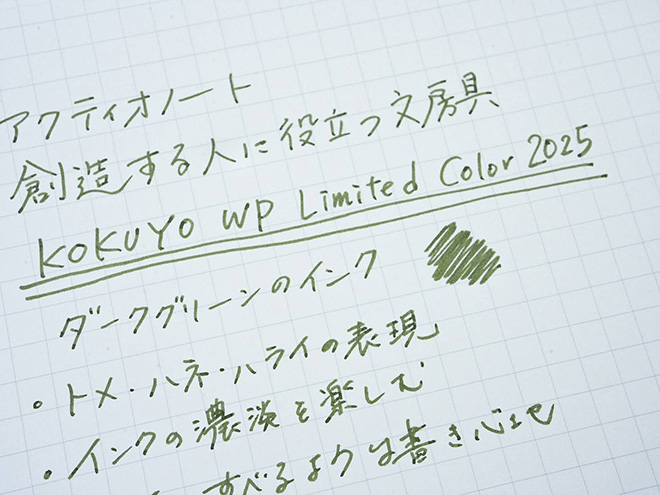 アクティオノート
創造する人に役立つ文房具
KOKUYO WP Limited Color 2025
ダークグリーンのインク
・トメ・ハネ・ハライの表現
・インクの濃淡を楽しむ
すべるような書き心地